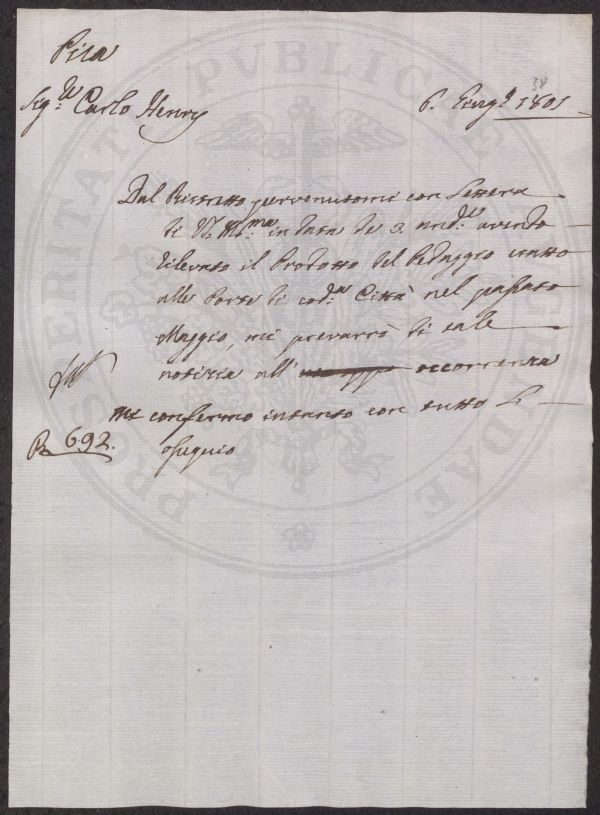 Pisa
38
Sig.re Carlo Henry
6. Giug.o 1801
Dal Ristretto pervenutomi con Lettera
di V. S. Ill.ma in data de 3. and.e avendo
rilevato il Prodotto del Pedaggio esatto
alle Porte di cod.a Città nel passato
Maggio, mi prevarrò di tale
notizia all' occorrenza
Mi confermo intanto con tutto l'
ossequio
692.
PROSPERITATI PUBLICAE AUGENDAE